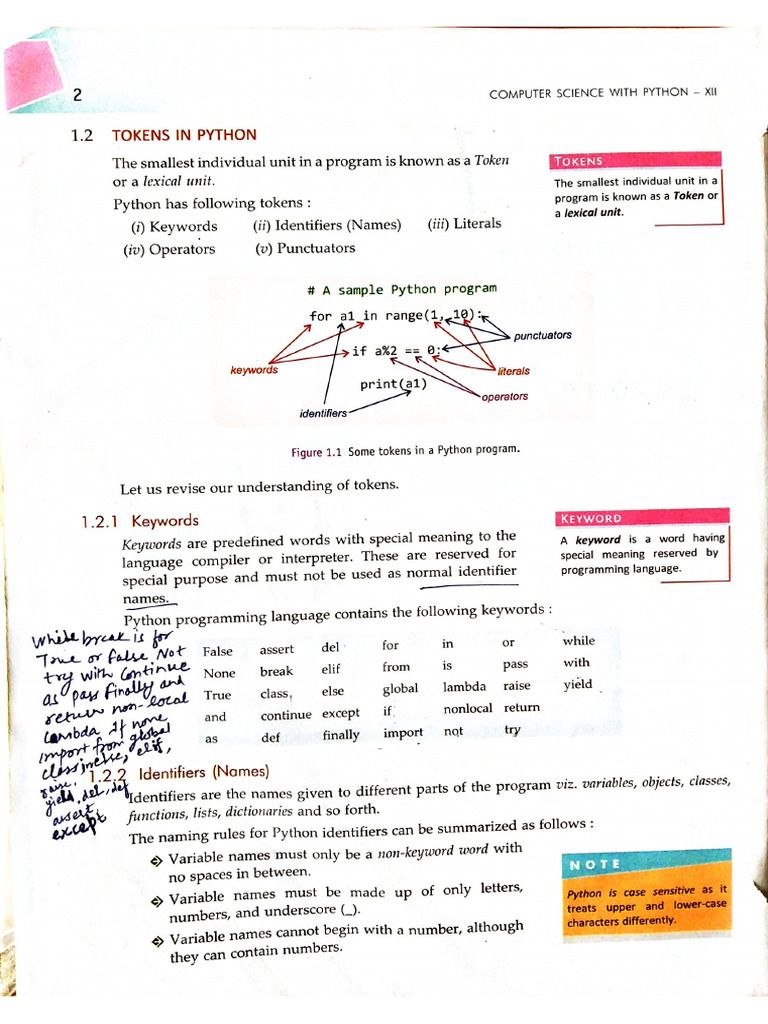 2
COMPUTER SCIENCE WITH PYTHON – XII
1.2 TOKENS IN PYTHON
The smallest individual unit in a program is known as a Token
or a lexical unit.
Python has following tokens :
(i) Keywords (ii) Identifiers (Names) (iii) Literals
(iv) Operators (v) Punctuators
TOKENS
The smallest individual unit in a
program is known as a Token or
a lexical unit.
# A sample Python program
for a1 in range(1, 10):
punctuators
if a%2 == 0:
keywords
literals
print(a1)
operators
identifiers
Figure 1.1 Some tokens in a Python program.
Let us revise our understanding of tokens.
1.2.1 Keywords
Keywords are predefined words with special meaning to the
language compiler or interpreter. These are reserved for
special purpose and must not be used as normal identifier
names.
KEYWORD
A keyword is a word having
special meaning reserved by
programming language.
Python programming language contains the following keywords :
False assert del for in or while
None break elif from is pass with
True class else global lambda raise yield
and continue except if nonlocal return
as def finally import not try
While break is for
True or false Not
try with Continue
as pass finally and
return non-local
lambda if none
import from global
class, elif,
raise,
yield, del, def
assert,
except
1.2.2 Identifiers (Names)
Identifiers are the names given to different parts of the program viz. variables, objects, classes,
functions, lists, dictionaries and so forth.
The naming rules for Python identifiers can be summarized as follows :
Variable names must only be a non-keyword word with
no spaces in between.
Variable names must be made up of only letters,
numbers, and underscore (_).
Variable names cannot begin with a number, although
they can contain numbers.
NOTE
Python is case sensitive as it
treats upper and lower-case
characters differently.